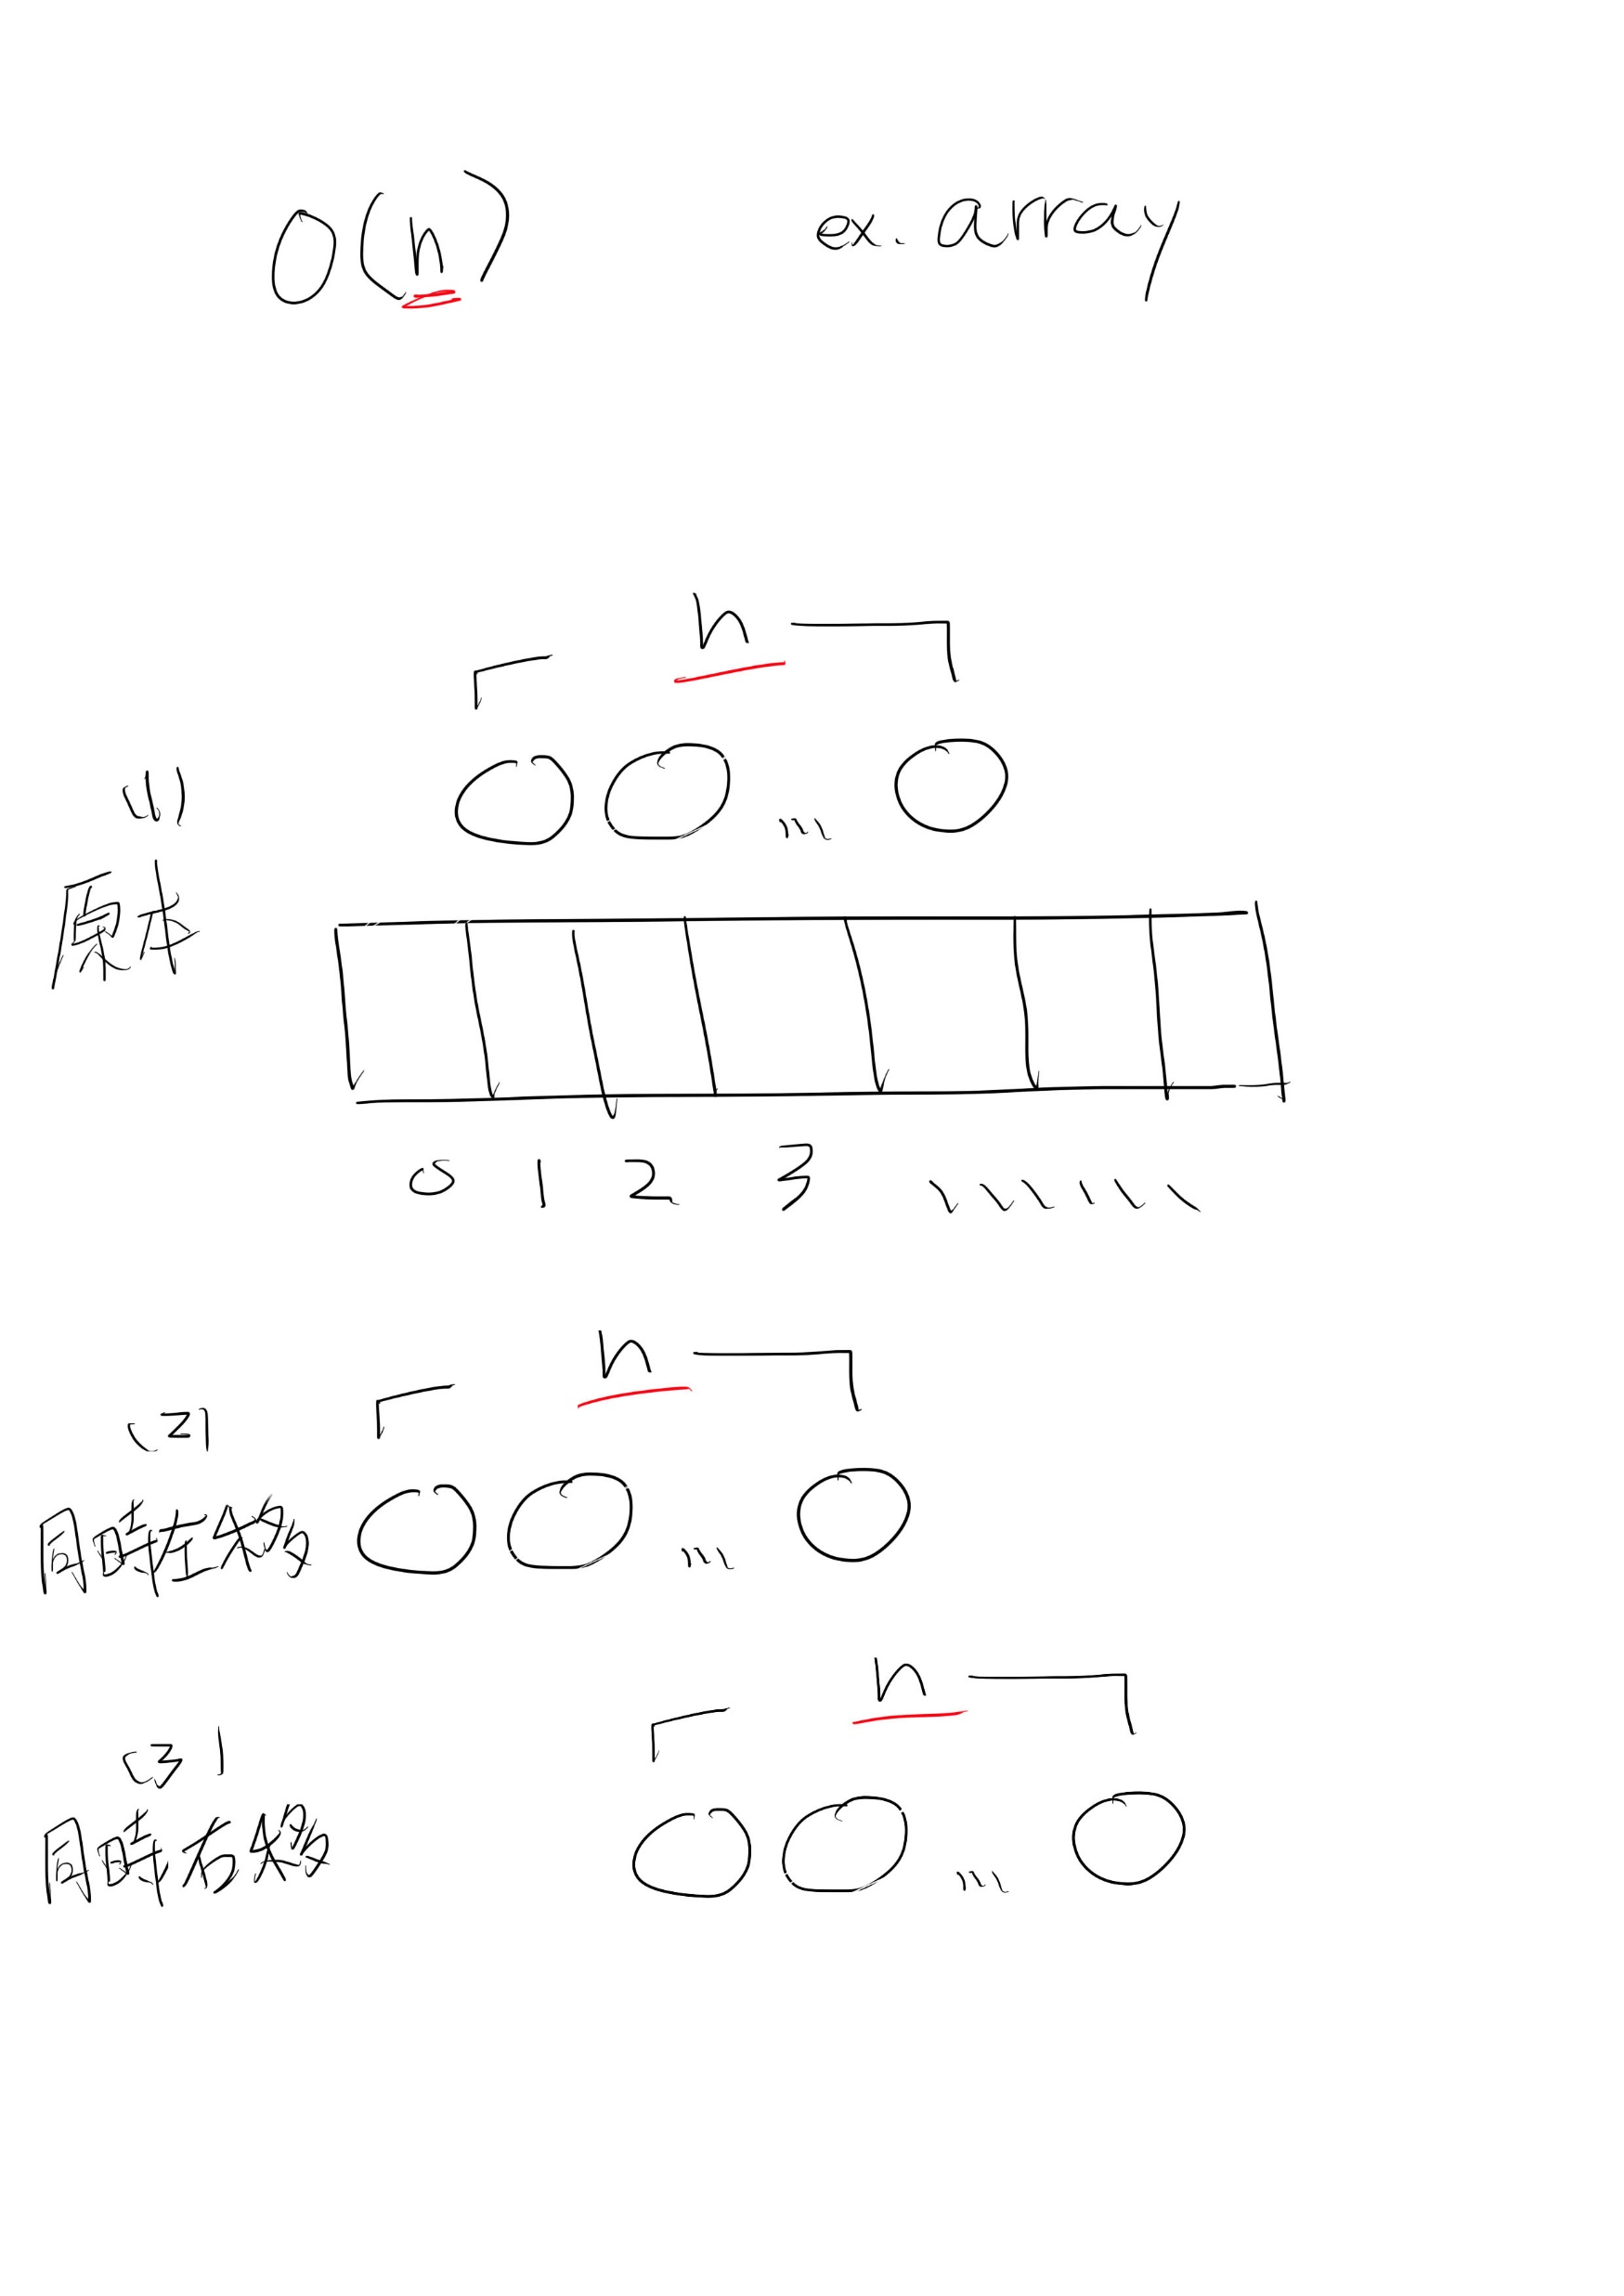 O(n) ex. array
n
(1)
...
原本
0 1 2 3 ......
n
(2)
同時左移
...
n
(3)
同時右移
...